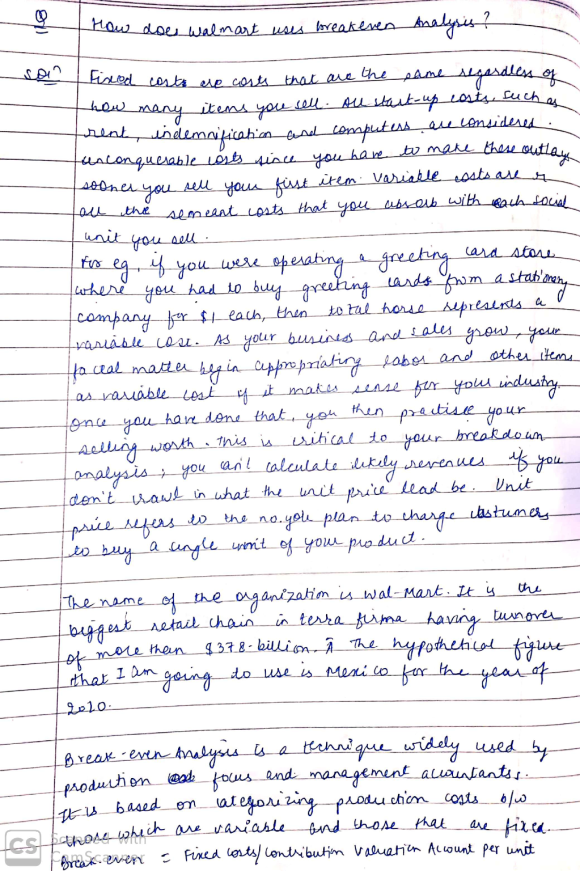 Q How does walmart uses breakeven Analysis?
Solⁿ Fixed costs are costs that are the same regardless of
how many items you sell. All start-up costs, such as
rent, indemnification and computers, are considered
unconquerable costs since you have to make these outlay
sooner you sell your first item. Variable costs are r
all the semeant costs that you absorb with each social
unit you sell.
For eg, if you were operating a greeting card store
where you had to buy greeting cards from a stationary
company for $1 each, then total horse represents a
variable case. As your business and sales grow, your
fo ceal matter begin appropriating labor and other items
as variable cost if it makes sense for your industry.
Once you have done that, you then practise your
selling worth. This is critical to your breakdown
analysis; you can't calculate likely revenues if you
don't crawl in what the unit price lead be. Unit
price refers to the no. you plan to charge custumers
to buy a single unit of your product.
The name of the organization is Wal-Mart. It is the
biggest retail chain in terra firma having turnover
of more than $378-billion. The hypothetical figure
that I am going to use is Mexico for the year of
2010.
Break-even Analysis is a technique widely used by
production focus and management accountants.
It is based on categorizing production costs b/w
those which are variable and those that are fixed.
Break-even = Fixed costs/contribution Valuation Account per unit
CS Scanned with
CamScanner